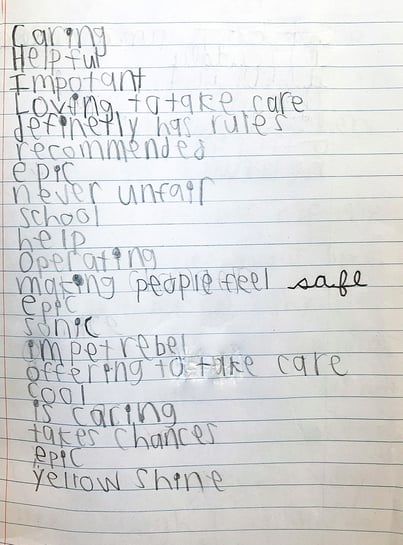 Caring
Helpful
Impotant
Loving to take care
definetly has rules
recommended
epic
never unfair
school
help
Operating
making people feel safe
epic
sonic
impet rebel
offering to take care
cool
is caring
takes chances
epic
yellow shine